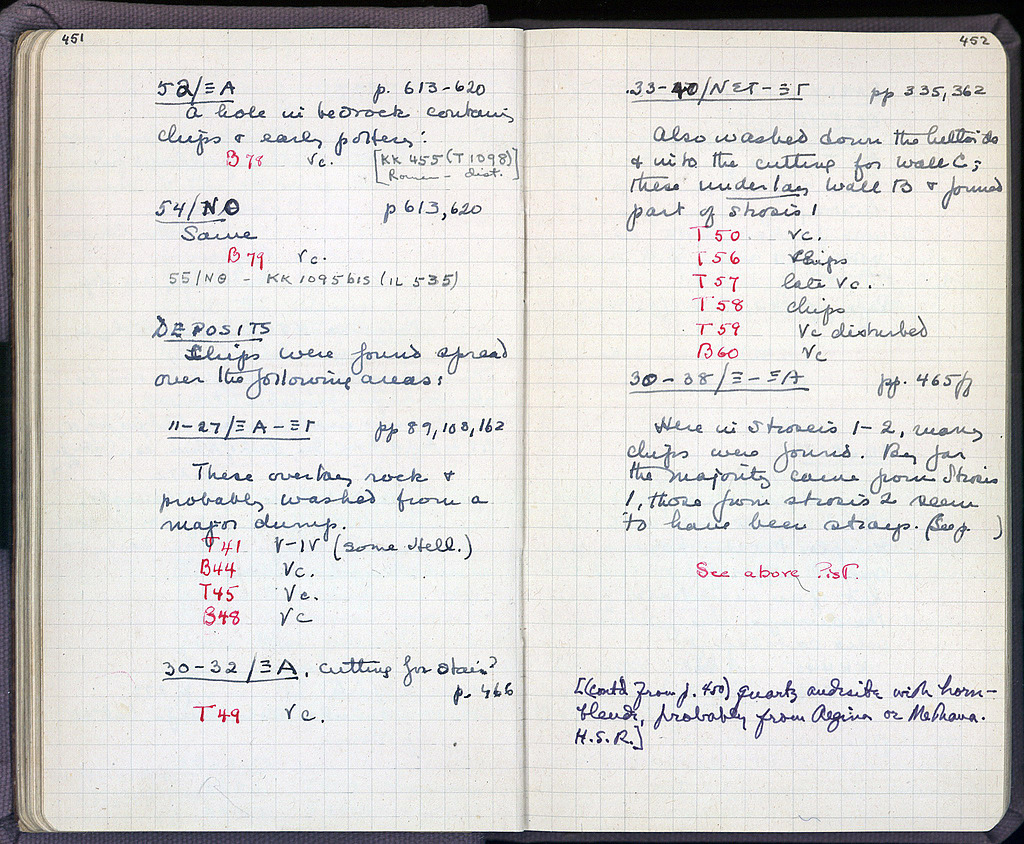 451
52/ΞA p. 613-620
A hole in bedrock contains
chips & early pottery:
B 78 Vc. [KK 455 (T 1098)
Roman - dist.]
54/NΘ p 613, 620
Same
B 79 Vc.
55/NΘ - KK 1095 bis (IL 535)
DEPOSITS
Chips were found spread
over the following areas:
11-27/ΞA-ΞΓ pp 89, 108, 162
These overlay rock &
probably washed from a
major dump.
T41 V-IV (some Hell.)
B44 Vc.
T45 Vc.
B48 Vc
30-32/ΞA, cutting for stair?
p. 466
T49 Vc.
452
33-40/N - ΞΓ pp 335, 362
Also washed down the
& into the cutting for wall C;
these underlay wall B & formed
part of strosis 1
T 50 Vc.
T 56 chips
T 57 late Vc.
T 58 chips
T 59 Vc disturbed
B60 Vc
30-38/Ξ-ΞA pp. 465ff
Here in Stroseis 1-2, many
chips were found. By far
the majority came from Strosis
1, those from strosis 2 seem
to have been strays. (See p. )
See above
[(cont'd from p. 450) quartz andesite with horn-
blende, probably from Aegina or Methana.
H.S.R.]